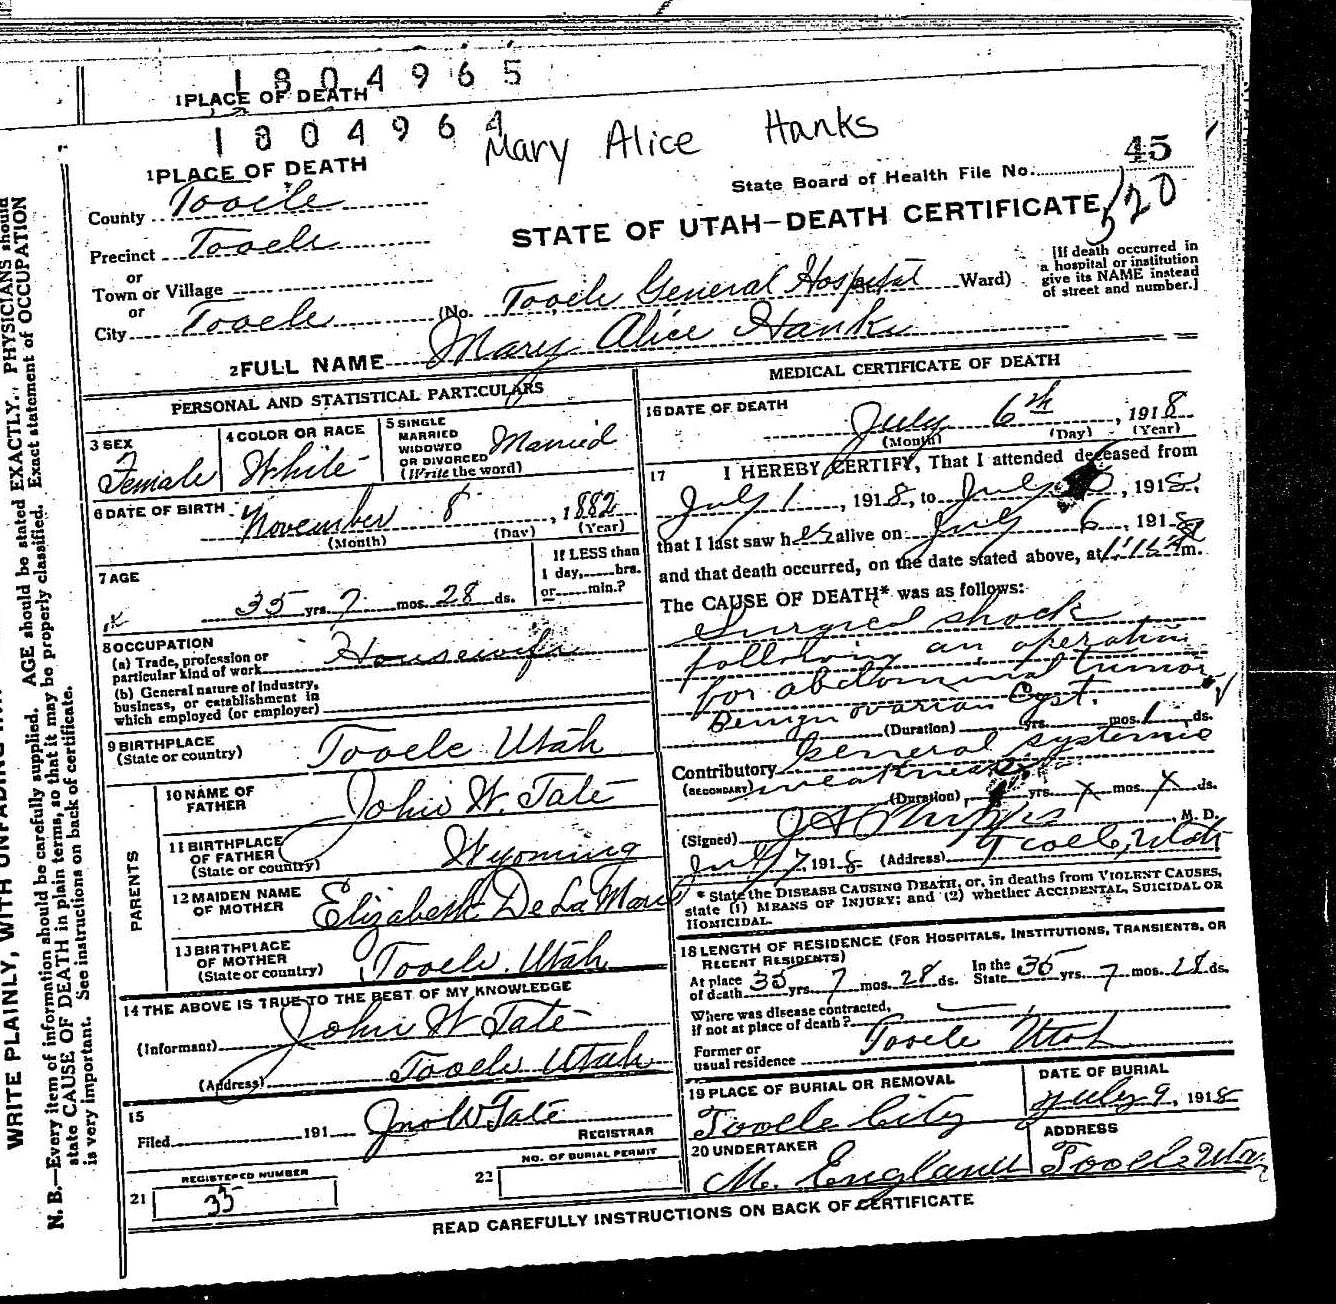 1804965
1 PLACE OF DEATH
1804964
Mary Alice Hanks
1 PLACE OF DEATH
State Board of Health File No. 45
120
County Tooele
STATE OF UTAH—DEATH CERTIFICATE
Precinct Tooele
or
Town or Village
or
City Tooele (No. Tooele General Hospital St. Ward)
[If death occurred in
a hospital or institution
give its NAME instead
of street and number.]
2 FULL NAME Mary Alice Hanks
PERSONAL AND STATISTICAL PARTICULARS
3 SEX
Female
4 COLOR OR RACE
White
5 SINGLE
MARRIED
WIDOWED
OR DIVORCED
(Write the word)
Married
6 DATE OF BIRTH
November 8, 1882
(Month) (Day) (Year)
7 AGE
35 yrs. 7 mos. 28 ds.
If LESS than
1 day, hrs.
or min.?
8 OCCUPATION
(a) Trade, profession or
particular kind of work Housewife
(b) General nature of industry,
business, or establishment in
which employed (or employer)
9 BIRTHPLACE
(State or country) Tooele Utah
PARENTS
10 NAME OF
FATHER John W. Tate
11 BIRTHPLACE
OF FATHER
(State or country) Wyoming
12 MAIDEN NAME
OF MOTHER Elizabeth De La Mare
13 BIRTHPLACE
OF MOTHER
(State or country) Tooele, Utah
14 THE ABOVE IS TRUE TO THE BEST OF MY KNOWLEDGE
(Informant) John W Tate
(Address) Tooele Utah
15
Filed 191 Jno W Tate
REGISTRAR
21 REGISTERED NUMBER
35
22 NO. OF BURIAL PERMIT
MEDICAL CERTIFICATE OF DEATH
16 DATE OF DEATH
July 6th, 1918
(Month) (Day) (Year)
17 I HEREBY CERTIFY, That I attended deceased from
July 1, 1918, to July 6, 1918,
that I last saw her alive on July 6, 1918
and that death occurred, on the date stated above, at 1:15 m.
The CAUSE OF DEATH* was as follows:
Surgical shock
following an operation
for abdominal tumor
Benign ovarian Cyst.
(Duration) yrs. mos. 1 ds.
Contributory General systemic
(SECONDARY) weakness
(Duration) yrs. X mos. X ds.
(Signed) J A Phipps, M. D.
July 7, 1918 (Address) Tooele, Utah
* State the DISEASE CAUSING DEATH, or, in deaths from VIOLENT CAUSES,
state (1) MEANS OF INJURY; and (2) whether ACCIDENTAL, SUICIDAL OR
HOMICIDAL.
18 LENGTH OF RESIDENCE (FOR HOSPITALS, INSTITUTIONS, TRANSIENTS, OR
RECENT RESIDENTS)
At place
of death 35 yrs. 7 mos. 28 ds. In the
State 35 yrs. 7 mos. 28 ds.
Where was disease contracted,
if not at place of death?
Former or
usual residence Tooele Utah
19 PLACE OF BURIAL OR REMOVAL
Tooele City
DATE OF BURIAL
July 9, 1918
20 UNDERTAKER
M. England
ADDRESS
Tooele Utah
READ CAREFULLY INSTRUCTIONS ON BACK OF CERTIFICATE
WRITE PLAINLY, WITH UNFADING
N. B.—Every item of information should be carefully supplied. AGE should be stated EXACTLY. PHYSICIANS should
state CAUSE OF DEATH in plain terms, so that it may be properly classified. Exact statement of OCCUPATION
is very important. See instructions on back of certificate.